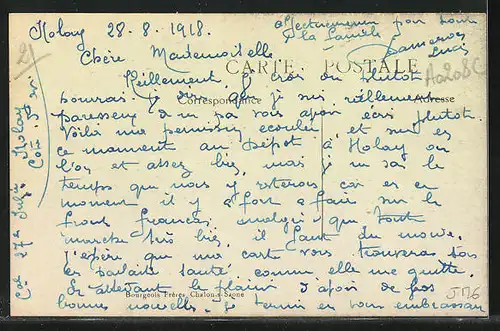 Holay 28-8-1918.
Affectueusement pour toute
la famille
Dameron
Chère Mademoiselle
CARTE POSTALE
Réellement je crois ou plutot
Correspondance Adresse
pourrai je dire que je suis réellement
paresseux de ne pas vous avoir écris plutot.
Voilà une permission ecoulée, et suis en
ce moment au Dépôt à Holay ou
l'on est assez bien, mais je ne sai le
temps que nous y resterons car en ce
moment il y a fort a faire sur le
front Francais malgré que tout
marche très bien, il faut du monde.
J'espère que ma carte vous trouvera tous
en parfaite santé comme elle me quitte.
En attendant le plaisir d'avoir de vos
Bourgeois Frères, Chalon-s-Saone
bonnes nouvelles. Je termine en vous embrassant
27e
Holay
21
A0208C
J M6